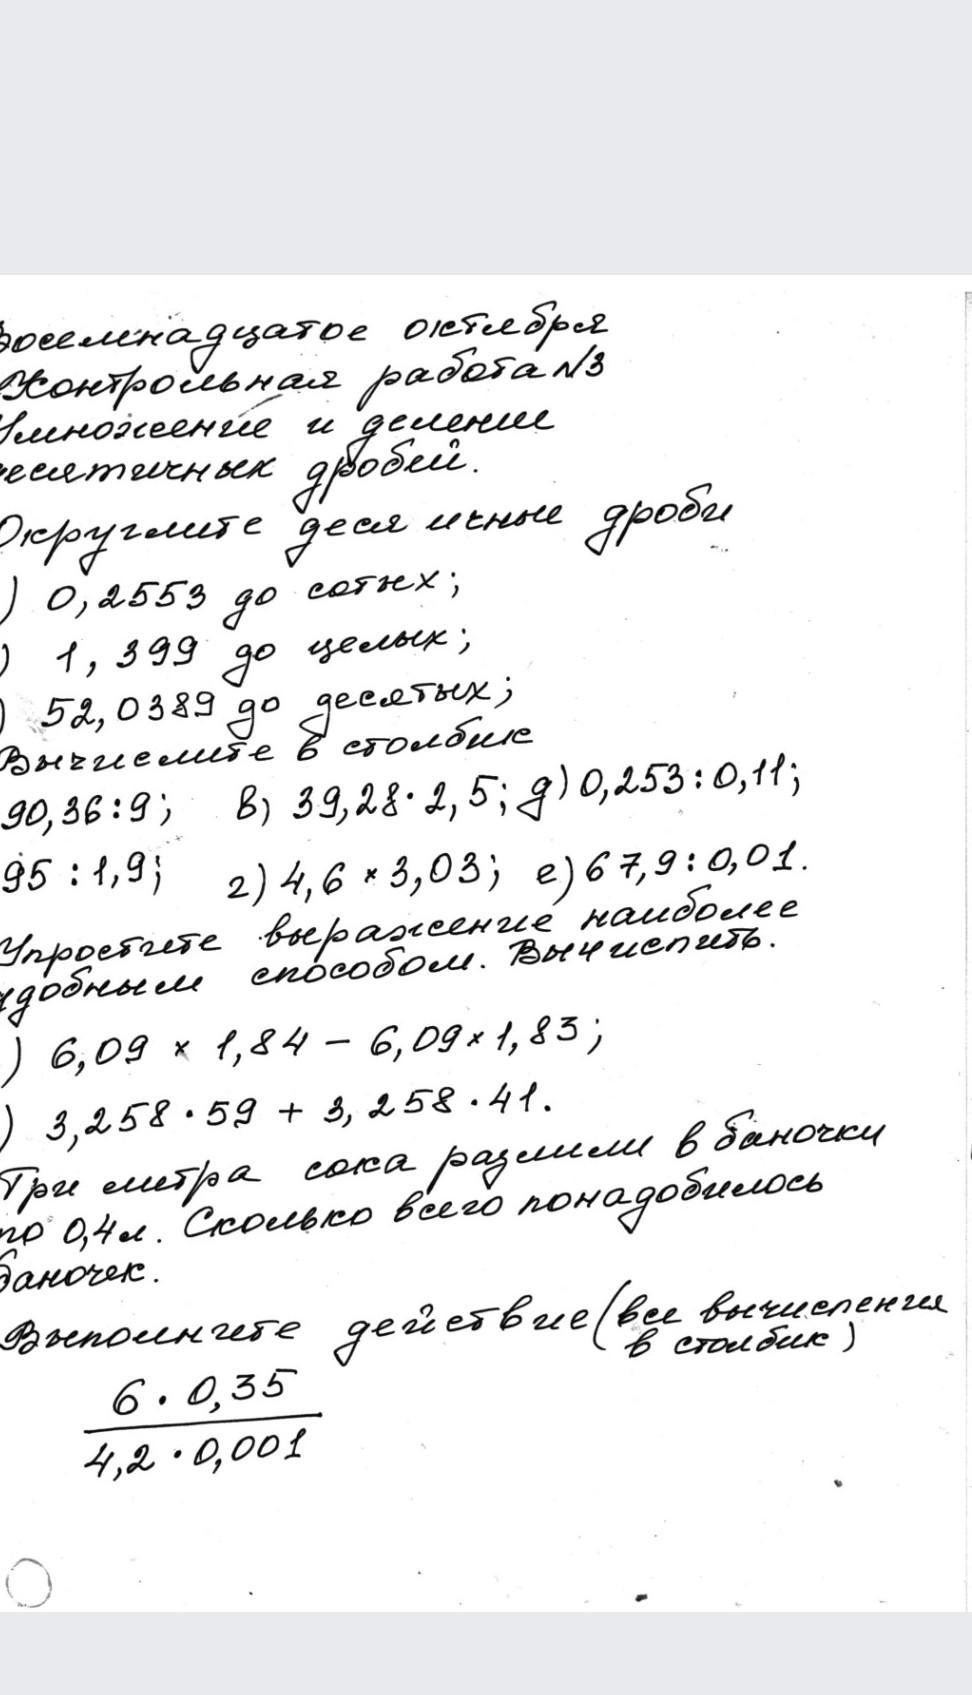 Восемнадцатое октября
Контрольная работа №3
Умножение и деление
десятичных дробей.
Округлите деся ичные дроби
) 0,2553 до сотых;
) 1,399 до целых;
) 52,0389 до десятых;
Вычислите в столбик
90,36:9; в) 39,28·2,5; д) 0,253:0,11;
95:1,9; г) 4,6×3,03; е) 67,9:0,01.
Упростите выражение наиболее
удобным способом. Вычислить.
) 6,09 × 1,84 - 6,09×1,83;
) 3,258·59 + 3,258·41.
Три литра сока разлили в баночки
по 0,4л. Сколько всего понадобилось
баночек.
Выполните действие (все вычисления
в столбик)
6·0,35
4,2·0,001